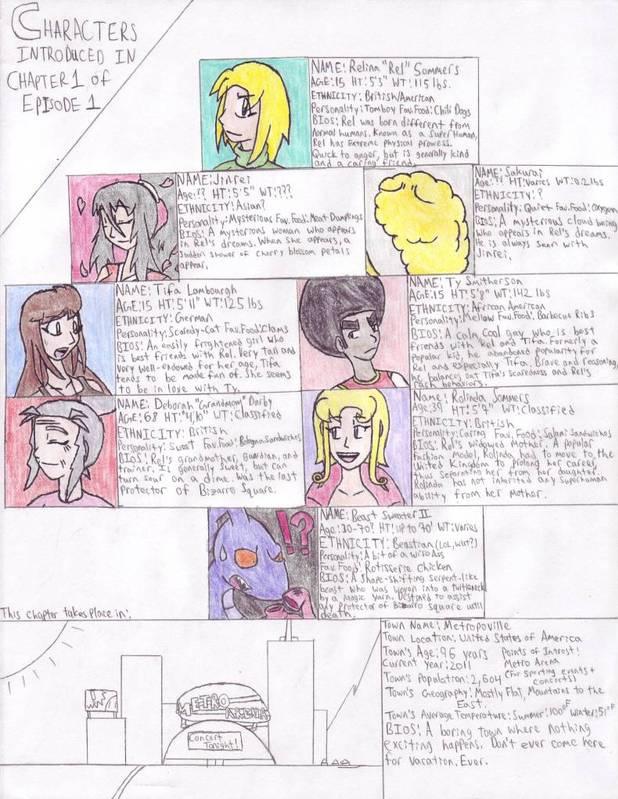 CHARACTERS
INTRODUCED IN
CHAPTER 1 of
EPISODE 1
NAME: Relina "Rel" Sommers
AGE: 15 HT: 5'3" WT: 115 lbs.
ETHNICITY: British/American
Personality: Tomboy Fav. Food: Chili Dogs
BIOS: Rel was born different from
normal humans. Known as a Super Human,
Rel has Extreme physical prowess.
Quick to anger, but is generally kind
and a caring friend.
NAME: Jinrei
Age: ?? HT: 5'5" WT: ???
ETHNICITY: Asian?
Personality: Mysterious Fav. Food: Meat Dumplings
BIOS: A mysterious woman who appears
in Rel's dreams. When she appears, a
sudden shower of cherry blossom petals
appear.
NAME: Sakurai
Age: ?? HT: Varies WT: 0.2 lbs
ETHNICITY: ?
Personality: Quiet Fav. Food: Oxygen
BIOS: A mysterious cloud being
who appears in Rel's dreams.
He is always seen with
Jinrei.
NAME: Tifa Lambourgh
AGE: 15 HT: 5'11" WT: 125 lbs
ETHNICITY: German
Personality: Scaredy-Cat Fav. Food: Clams
BIOS: An easily frightened girl who
is best friends with Rel. Very tall and
very well-endowed for her age, Tifa
tends to be made fun of. She seems
to be in love with Ty.
NAME: Ty Smitherson
AGE: 15 HT: 5'8" WT: 142 lbs
ETHNICITY: African American
Personality: Mellow Fav. Food: Barbecue Ribs
BIOS: A calm, cool guy who is best
friends with Rel and Tifa. Formerly a
popular kid, he abandoned popularity for
Rel and especially Tifa. Brave and reasoning,
he balances out Tifa's scaredness and Rel's
rash behaviors.
NAME: Deborah "Grandmom" Darby
Age: 68 HT: 4'6" WT: Classified
ETHNICITY: British
Personality: Sweet Fav. Food: Bologna Sandwiches
BIOS: Rel's grandmother, guardian, and
trainer. Is generally sweet, but can
turn sour on a dime. Was the last
Protector of Bizarro Square.
NAME: Rolinda Sommers
Age: 39 HT: 5'4" WT: Classified
ETHNICITY: British
Personality: Caring Fav. Food: Salami Sandwiches
BIOS: Rel's widowed Mother. A popular
fashion model, Rolinda had to move to the
United Kingdom to prolong her career,
thus separated from her daughter.
Rolinda has not inherited any Superhuman
ability from her mother.
!?
NAME: Beast Sweater II
Age: 30-70? HT: Up to 70' WT: Varies
ETHNICITY: Beastian (Lol, wut?)
Personality: A bit of a wise Ass
Fav. Food: Rotisserie Chicken
BIOS: A shape-shifting serpent-like
beast who was woven into a turtleneck
by a magic yarn. Destined to assist
any Protector of Bizarro Square until
death.
This chapter takes place in:
METRO
ARENA
Concert
Tonight!
Town Name: Metropoville
Town Location: United States of America
Town's Age: 96 years Points of Intrest:
Current Year: 2011 Metro Arena
Town's Population: 2,604 (For sporting events +
concerts)
Town's Geography: Mostly Flat, Mountains to the
East.
Town's Average Temperature: Summer: 100°F Winter: 51°F
BIOS: A boring town where nothing
exciting happens. Don't ever come here
for vacation. Ever.